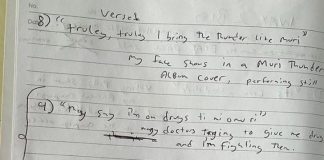 NO.
Verses
8) "truley, truley I bring the thunder like muri"
my face shows in a Muri Thunder
Album cover, performing still
9) "they say i'm on drugs
my doctors trying to give me drugs
and I'm fighting them.